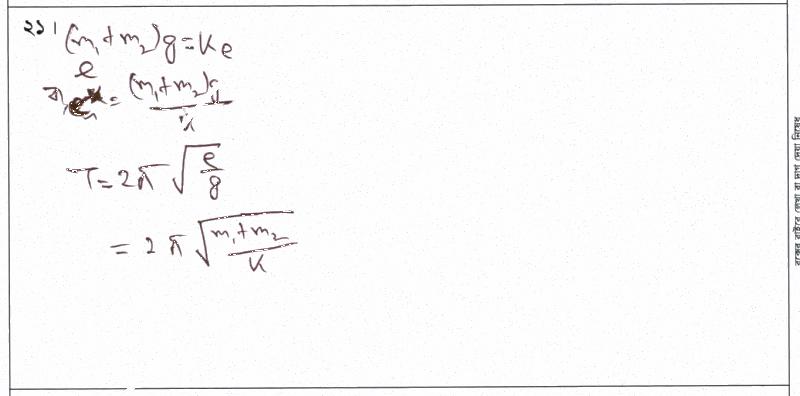 ২১। (m₁+m₂)g=Ke
e
বা, = (m₁+m₂)g/K
T=2π√(e/g)
= 2π√((m₁+m₂)/K)
বক্সের বাইরে লেখা বা দাগ দেয়া নিষেধ